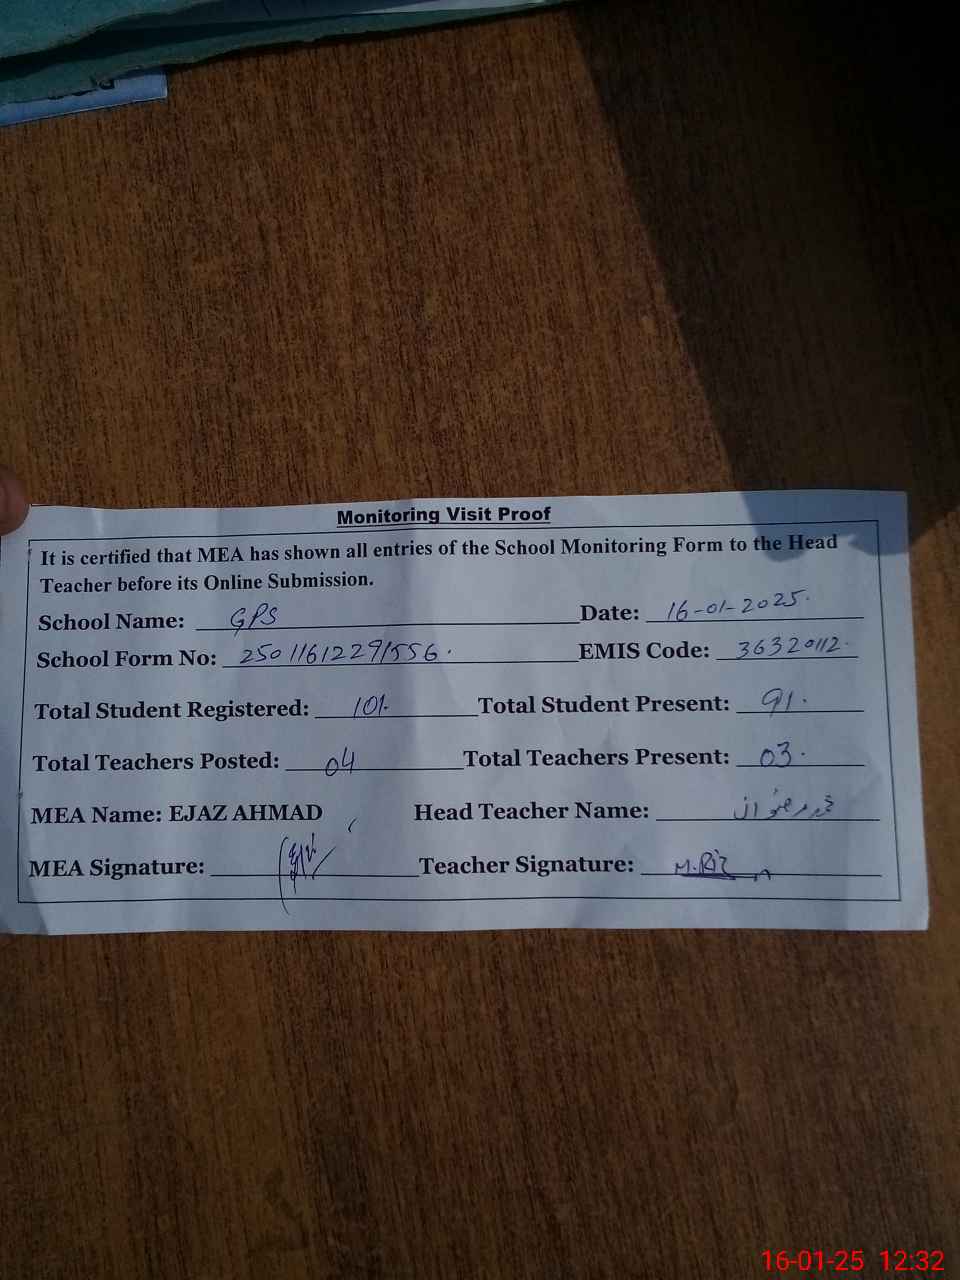 Monitoring Visit Proof
It is certified that MEA has shown all entries of the School Monitoring Form to the Head
Teacher before its Online Submission.
School Name: GPS Date: 16-01-2025.
School Form No: 25011612291556. EMIS Code: 36320112.
Total Student Registered: 101. Total Student Present: 91.
Total Teachers Posted: 04 Total Teachers Present: 03.
MEA Name: EJAZ AHMAD Head Teacher Name: محمد رضوان
MEA Signature: Teacher Signature: M.Riz
16-01-25 12:32